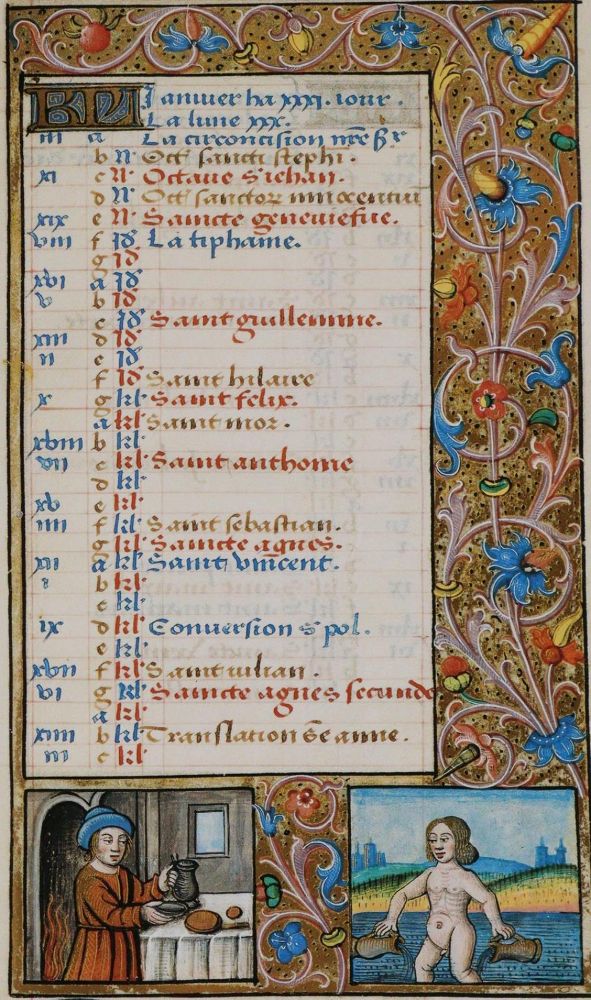 KL Januier ha xxxi. iour.
La lune xxx.
iii a La circoncision nrē sr
b N Oct sancti stephi.
xi c N Octaue s iehan.
d N Oct sanctor innocentiu
xix e N Saincte geneuiefue.
viii f Id La tiphaine.
g Id
xvi a Id
v b Id
c Id Saint guillemme.
xiii d Id
ii e Id
f Id Saint hilaire
x g kl Saint felix.
a kl Saint mor.
xviii b kl
vii c kl Saint anthoine
d kl
xv e kl
iiii f kl Saint sebastian.
g kl Saincte agnes.
xii a kl Saint vincent.
i b kl
c kl
ix d kl Conversion s pol.
e kl
xvii f kl Saint iulian.
vi g kl Saincte agnes seconde
a kl
xiiii b kl Translation sē anne.
iii c kl